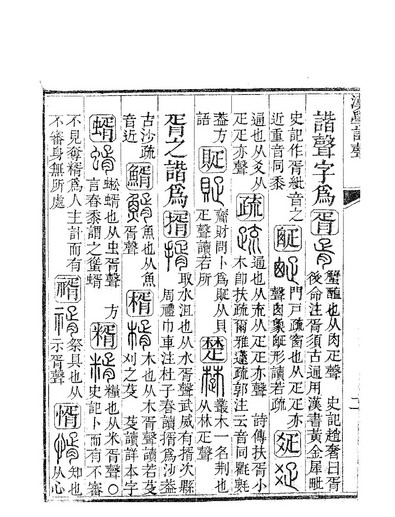 漢學諧聲
二
諧聲字爲胥
蟹醢也从肉疋聲 史記趙奢曰胥
後命注胥須古通用漢書黃金犀毗
史記作胥紕音之
近重音同黍
𤴙
門戶疏窗也从疋疋亦
聲囪象𤴙形讀若疏
𤕟
通也从爻从
疋疋亦聲
疏
通也从㐬从疋疋亦聲 詩傳扶胥小
木卽扶疏爾雅 疏郭注云音同
葢方
語
𧵍
齎財問卜爲𧵍从貝
疋聲讀若所
楚
叢木一名荆也
从林疋聲
胥之諧爲揟
取水沮也从水胥聲武威有揟次縣
周禮巾車注杜子春讀揟爲沙葢
古沙疏
音近
䱬
魚也从魚
胥聲
楈
木也从木胥聲讀若芟
刈之芟 芟讀詳本字
蝑
蜙蝑也从虫胥聲 方
言春黍謂之蝑
糈
糧也从米胥聲〇
史記卜而有不審
不見奪糈爲人主計而有
不審身無所處
祭具也从
示胥聲
㥠
知也从心